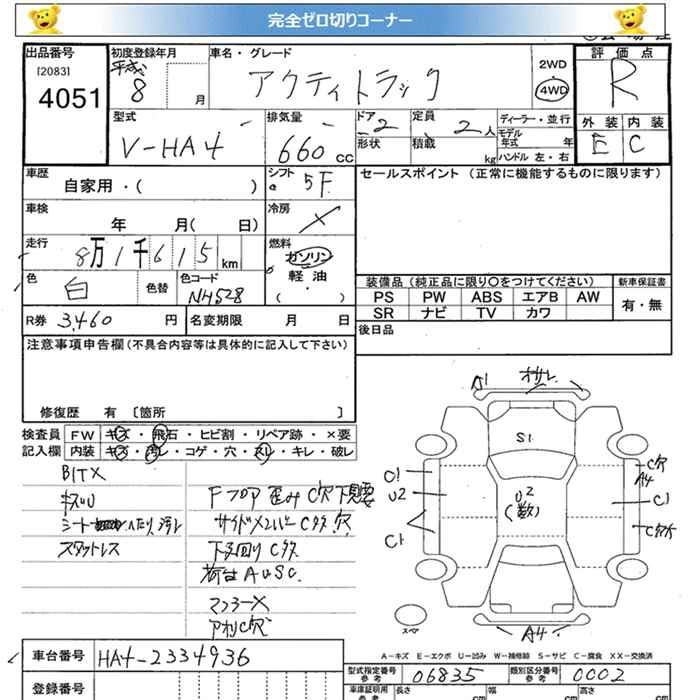 完全ゼロ切りコーナー
出品番号 初度登録年月 車名・グレード 評価点
[2083] 平成
4051 8 月 アクティトラック 2WD 4WD R
型式 排気量 ドア 定員 ディーラー・並行 外装 内装
V-HA4 660 cc 2 2人 モデル年式 年 E C
形状 積載 kg ハンドル 左・右
車歴 シフト セールスポイント (正常に機能するものに限ります)
自家用・( ) 5F
車検 冷房
年 月( 日) ×
走行 燃料
8万1千615 km ガソリン
色 色替 色コード 軽油
白 NH528 ・( )
装備品 (純正品に限り○をつけてください) 新車保証書
PS PW ABS エアB AW 有・無
SR ナビ TV カワ
R券 3,460 円 名変期限 月 日 後日品
注意事項申告欄 (不具合内容等は具体的に記入して下さい)
修復歴 有 [箇所 ]
検査員 FW キズ・飛石・ヒビ割・リペア跡・×要
記入欄 内装 キズ・汚レ・コゲ・穴・スレ・キレ・破レ
シート ヘたり 汚レ
スタットレス
Fフロア 歪み C穴 下見要
サイドメンバー C多 穴
下廻り C多
荷台 AUSC
マフラーX
アオリC穴
A1
S1
C1 C穴
U2 A4
U2 C1
(数)
C1
A4
スペア
A-キズ E-エクボ U-凹み W-補修跡 S-サビ C-腐食 XX-交換済
車台番号 HA4-2334936 型式指定番号 参考 06835 類別区分番号 参考 0002
登録番号 車庫証明用 参考 長さ cm 幅 cm 高さ cm